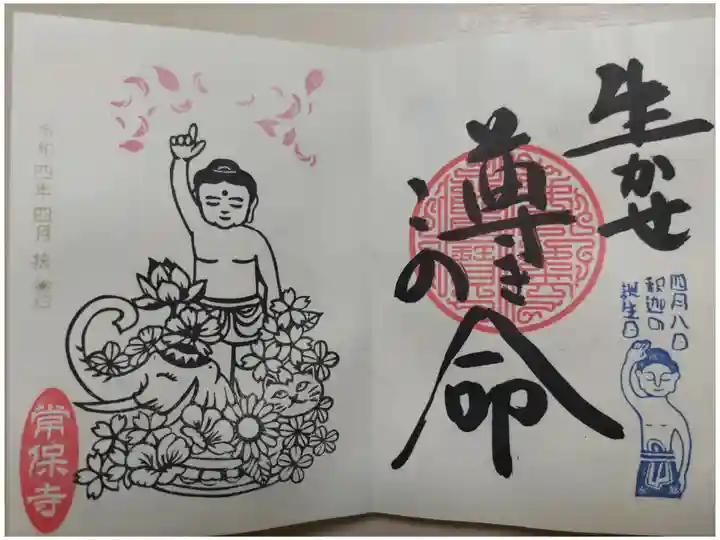 生かせ
尊き
この
命
四月八日
釈迦の
誕生日
令和四年四月 拝
常保寺